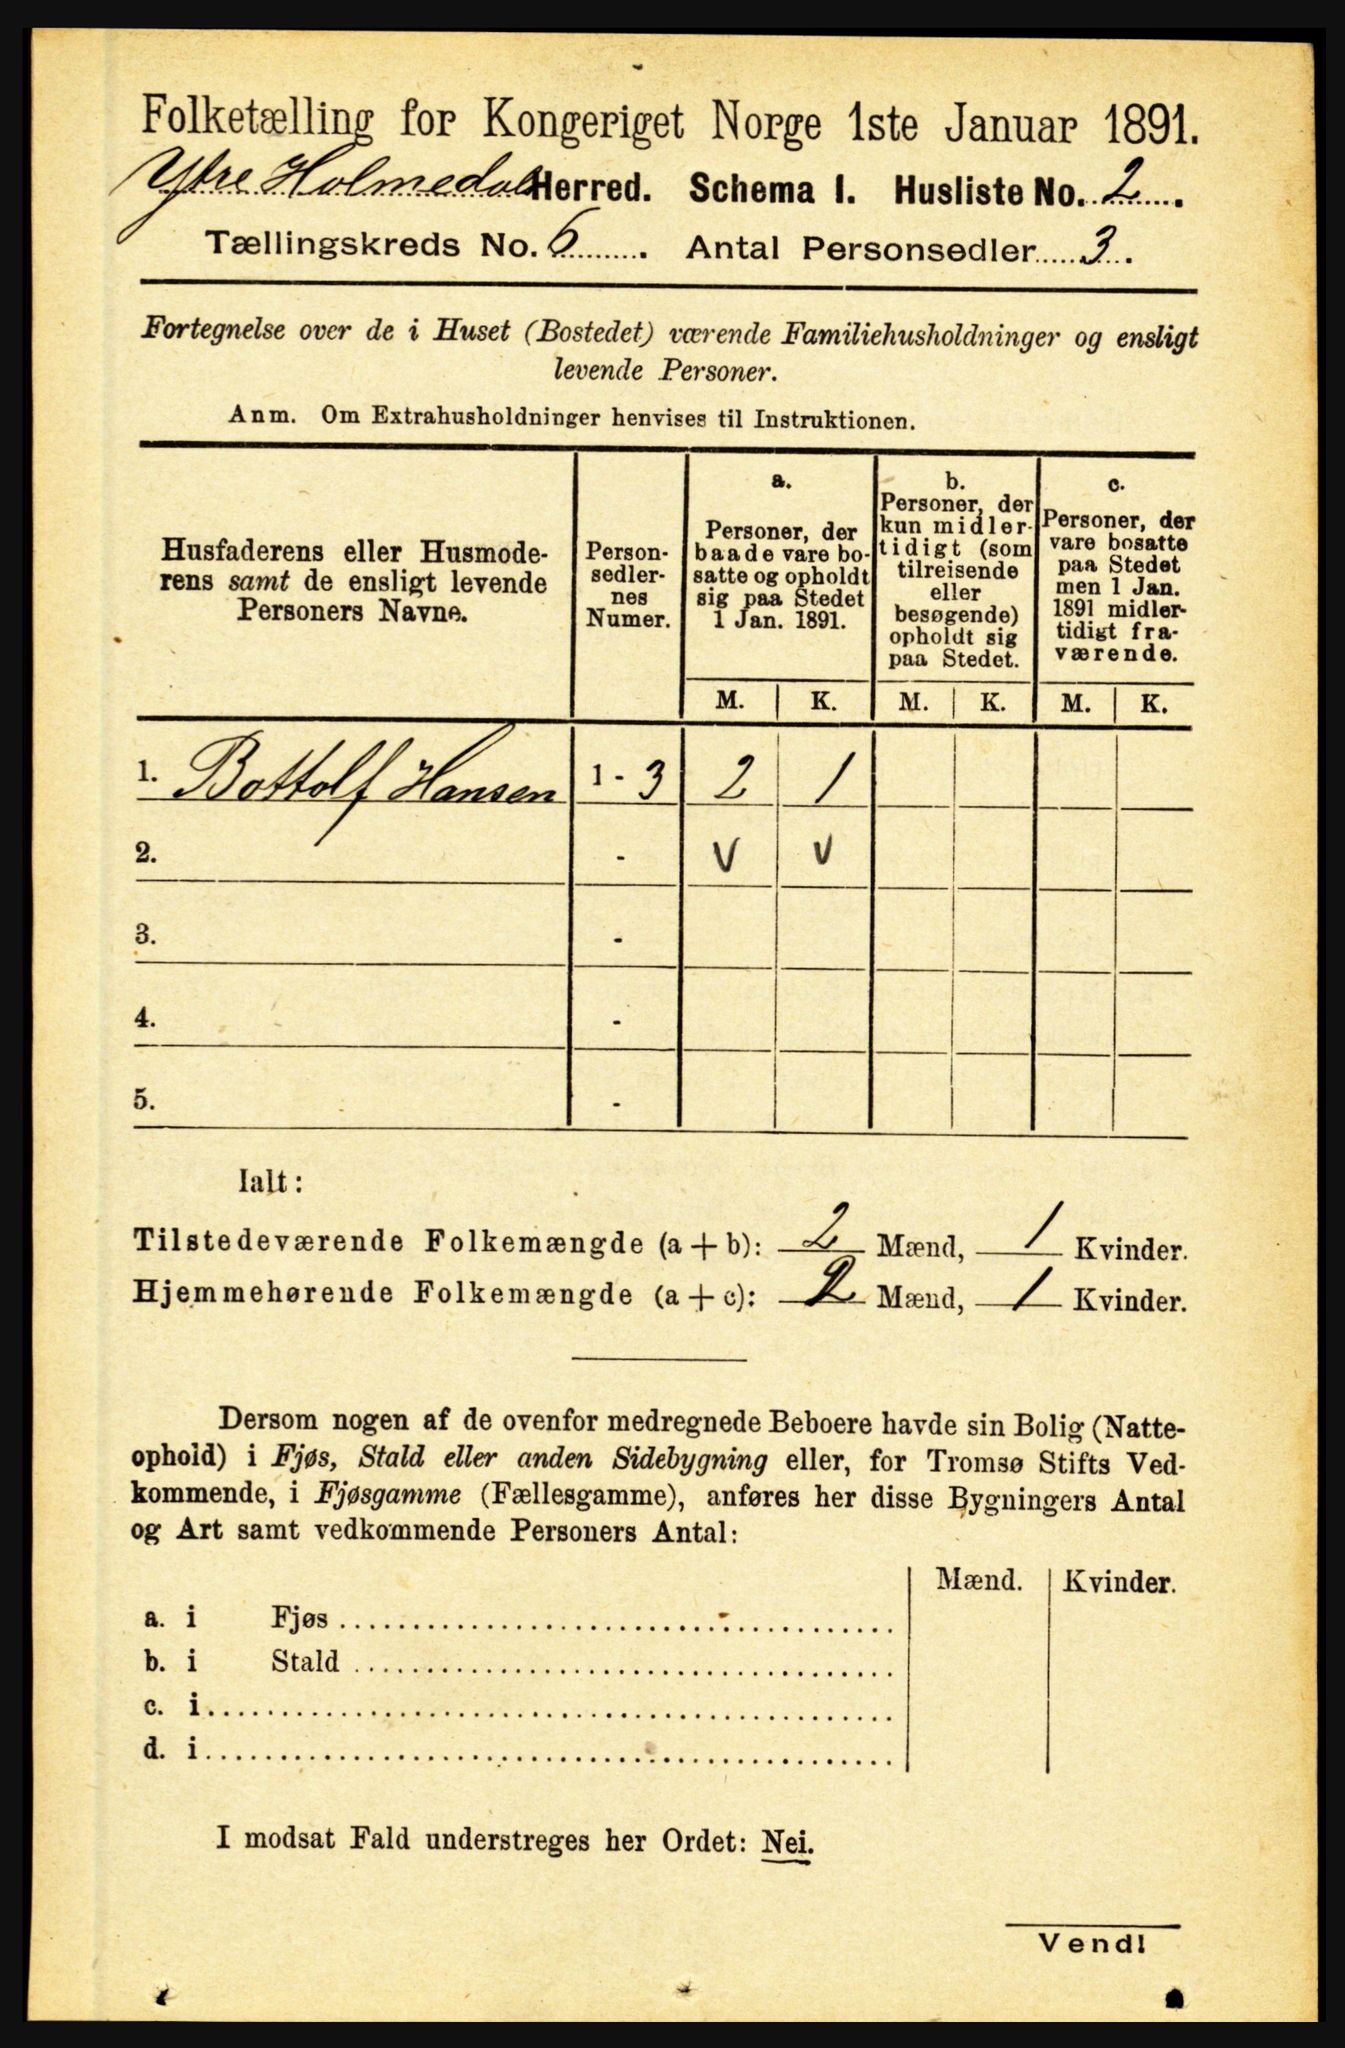 Folketælling for Kongeriget Norge 1ste Januar 1891.
Ytre Holmedal Herred. Schema I. Husliste No. 2.
Tællingskreds No. 6. Antal Personsedler 3.
Fortegnelse over de i Huset (Bostedet) værende Familiehusholdninger og ensligt
levende Personer.
Anm. Om Extrahusholdninger henvises til Instruktionen.
Husfaderens eller Husmode-
rens samt de ensligt levende
Personers Navne.
Person-
sedler-
nes
Numer.
a.
Personer, der
baade vare bo-
satte og opholdt
sig paa Stedet
1 Jan. 1891.
b.
Personer, der
kun midler-
tidigt (som
tilreisende
eller
besøgende)
opholdt sig
paa Stedet.
c.
Personer, der
vare bosatte
paa Stedet
men 1 Jan.
1891 midler-
tidigt fra-
værende.
M. K. M. K. M. K.
1. Bottolf Hansen 1 - 3 2 1
2. - V V
3. -
4. -
5. -
Ialt:
Tilstedeværende Folkemængde (a + b): 2 Mænd, 1 Kvinder.
Hjemmehørende Folkemængde (a + c): 2 Mænd, 1 Kvinder.
Dersom nogen af de ovenfor medregnede Beboere havde sin Bolig (Natte-
ophold) i Fjøs, Stald eller anden Sidebygning eller, for Tromsø Stifts Ved-
kommende, i Fjøsgamme (Fællesgamme), anføres her disse Bygningers Antal
og Art samt vedkommende Personers Antal:
Mænd. Kvinder.
a. i Fjøs
b. i Stald
c. i
d. i
I modsat Fald understreges her Ordet: Nei.
Vend!